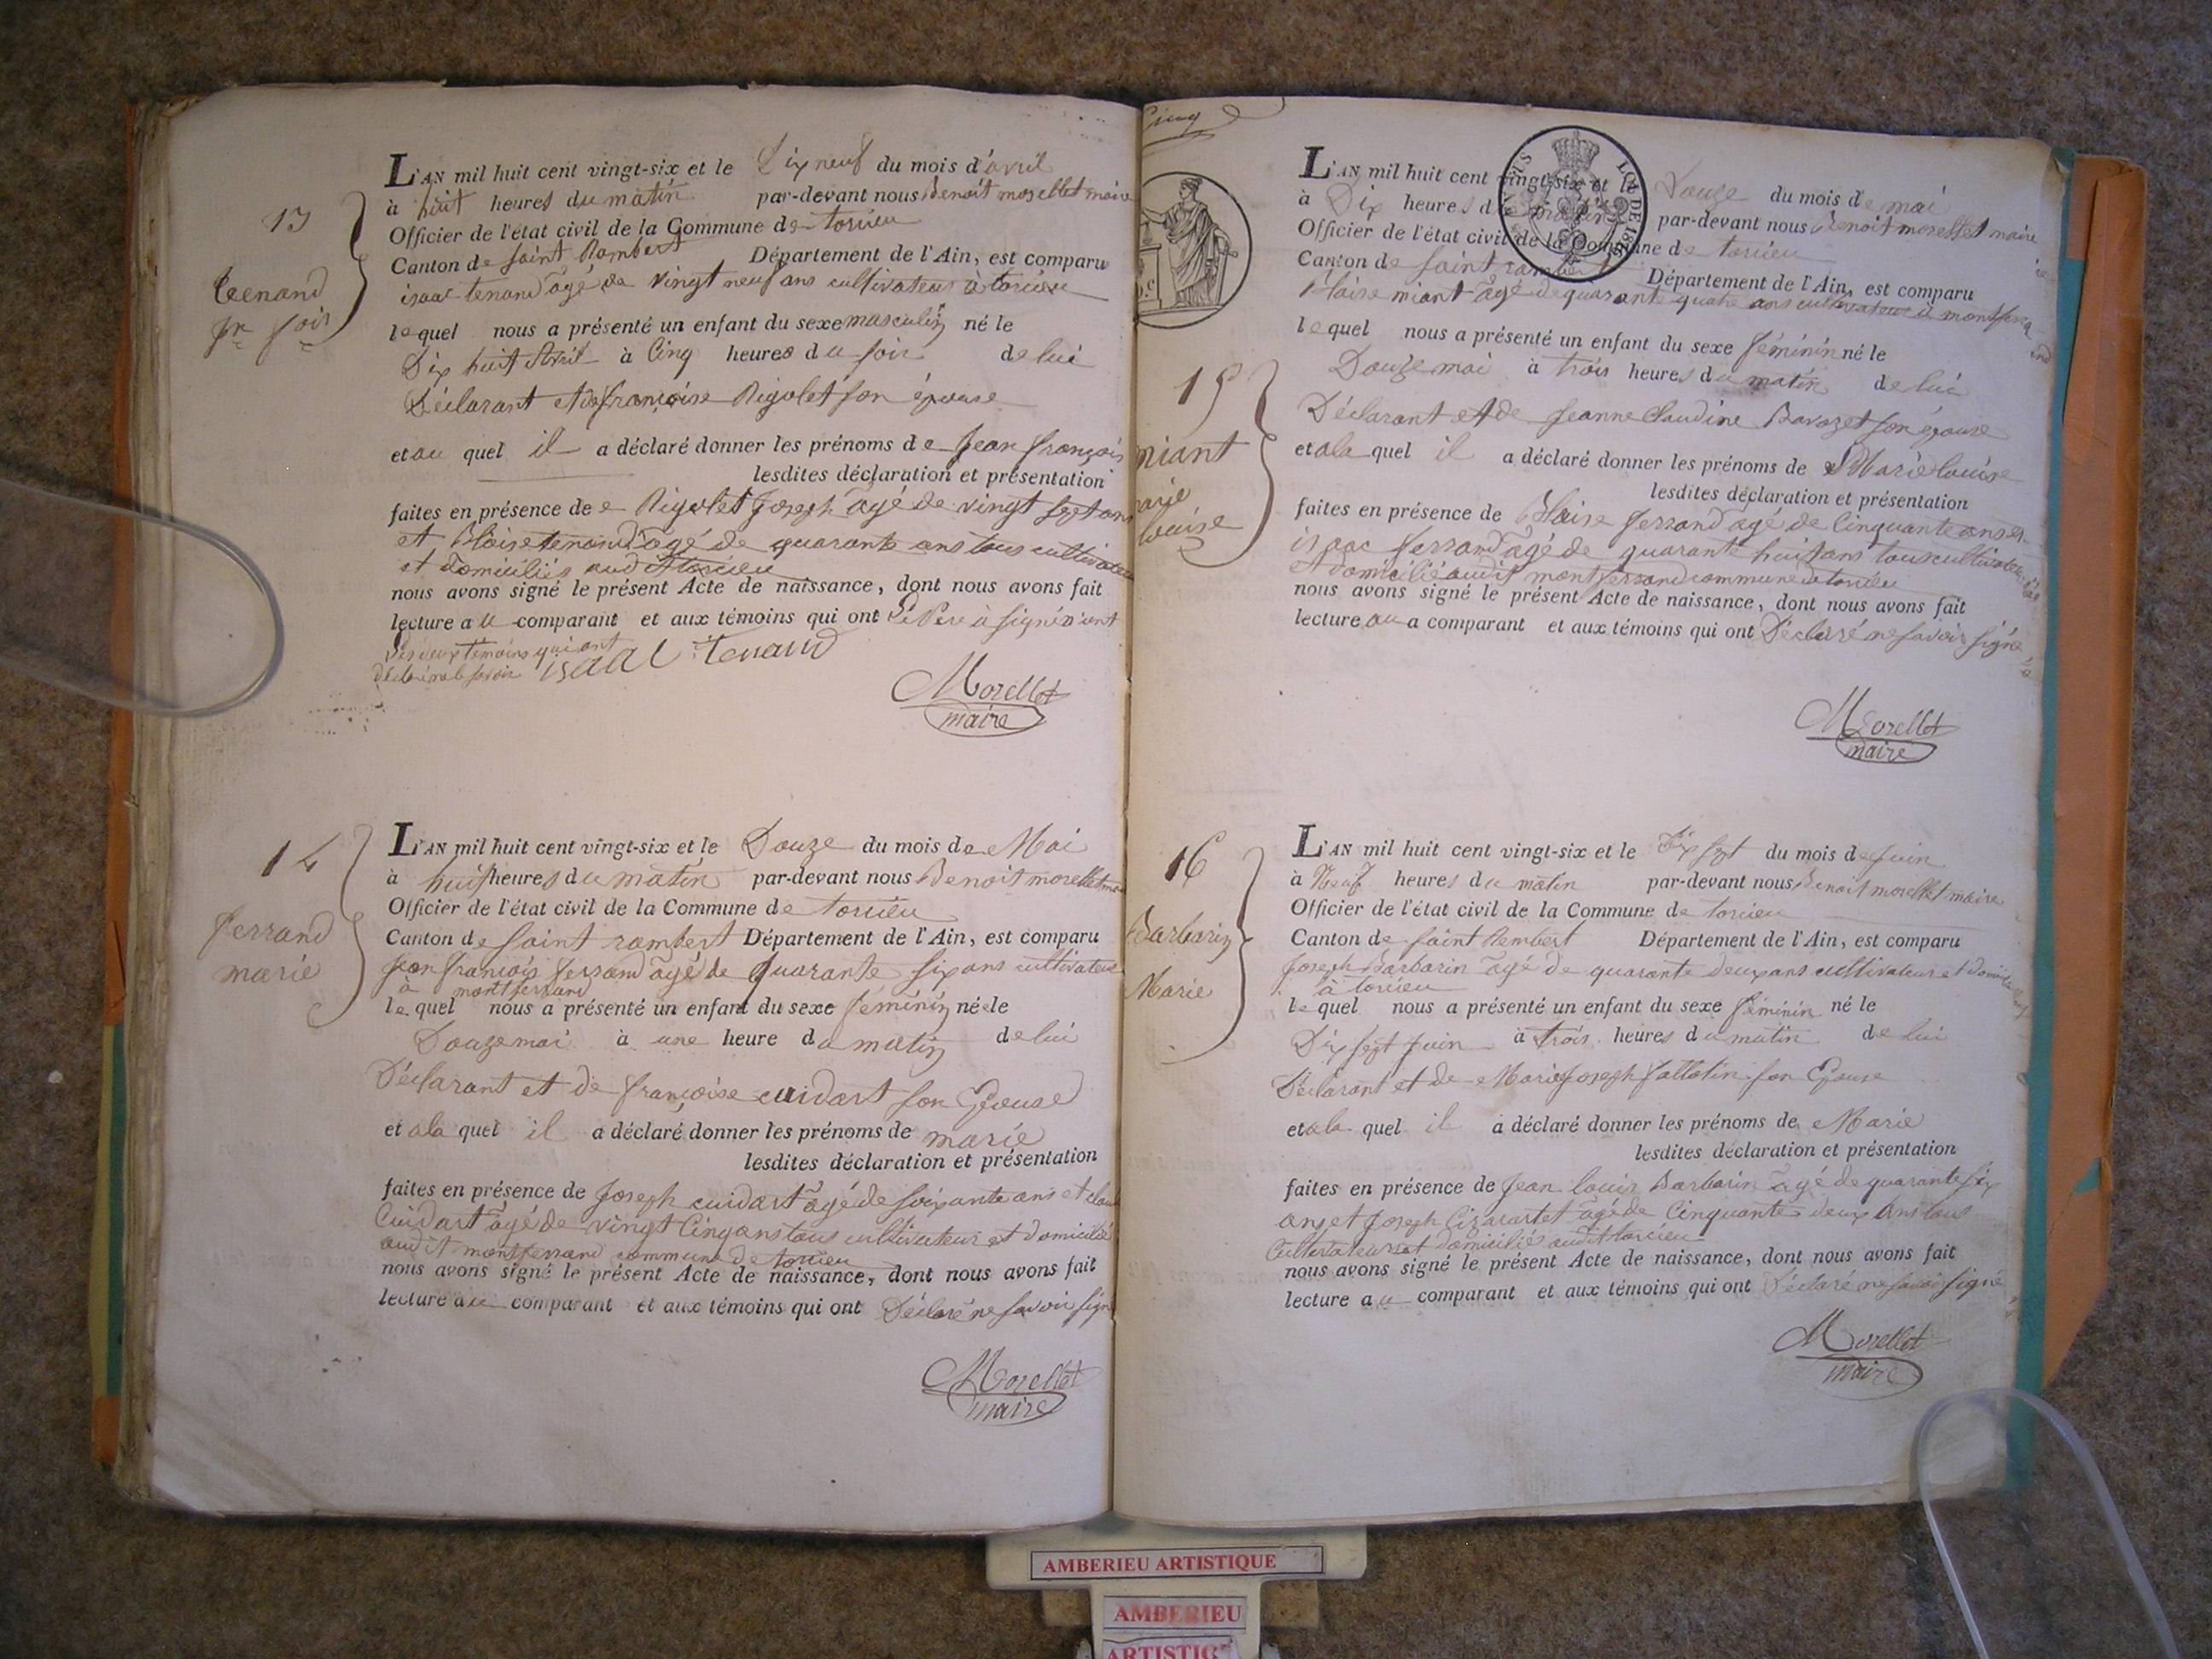 13
Tenand
jn fois
L'AN mil huit cent vingt-six et le Dix neuf du mois d'avril
à huit heures du matin par-devant nous Benoit morellet maire
Officier de l'état civil de la Commune de torcieu
Canton de saint Rambert Département de l'Ain, est comparu
isaac tenand âgé de vingt neuf ans cultivateur à torcieu
lequel nous a présenté un enfant du sexe masculin né le
Dix huit Avril à Cinq heures du soir de lui
Déclarant et de françoise Rigolet son épouse
et au quel il a déclaré donner les prénoms de Jean françois
lesdites déclaration et présentation
faites en présence de Rigolet Joseph âgé de vingt sept ans
et Blaise tenand âgé de quarante ans tous cultivateurs
et domiciliés audit torcieu
nous avons signé le présent Acte de naissance, dont nous avons fait
lecture au comparant et aux témoins qui ont le Pere à signé n'ont
les deux témoins qui ont
déclaré ne le savoir isaac tenand
Morellet
maire
14
ferrand
marie
L'AN mil huit cent vingt-six et le Douze du mois de Mai
à huit heures du matin par-devant nous Benoit morellet maire
Officier de l'état civil de la Commune de torcieu
Canton de saint rambert Département de l'Ain, est comparu
jean françois ferrand âgé de quarante six ans cultivateur
à montferrand
lequel nous a présenté un enfant du sexe féminin né le
Douze mai à une heure du matin de lui
Déclarant et de françoise cuidart son Epouse
et ala quel il a déclaré donner les prénoms de marie
lesdites déclaration et présentation
faites en présence de Joseph cuidart âgé de soixante ans et
Cuidart âgé de vingt Cinq ans tous cultivateur et domicilié
audit montferrand commune de torcieu
nous avons signé le présent Acte de naissance, dont nous avons fait
lecture au comparant et aux témoins qui ont Déclaré ne savoir signé
Morellet
maire
Cinq
15
miant
marie
louise
L'AN mil huit cent vingt-six et le Douze du mois de mai
à Dix heures du matin par-devant nous Benoit morellet maire
Officier de l'état civil de la Commune de torcieu
Canton de saint rambert Département de l'Ain, est comparu
Blaise miant âgé de quarante quatre ans cultivateur à montferrand
lequel nous a présenté un enfant du sexe féminin né le
Douze mai à trois heures du matin de lui
Déclarant et de Jeanne Claudine Bavozet son épouse
et ala quel il a déclaré donner les prénoms de Marie louise
lesdites déclaration et présentation
faites en présence de Blaise ferrand agé de Cinquante ans et
isaac ferrand âgé de quarante huit ans tous cultivateurs
et domicilié audit montferrand commune de torcieu
nous avons signé le présent Acte de naissance, dont nous avons fait
lecture au comparant et aux témoins qui ont Déclaré ne savoir signé
Morellet
maire
16
Barbarin
Marie
L'AN mil huit cent vingt-six et le Dix sept du mois de Juin
à Neuf heures du matin par-devant nous Benoit morellet maire
Officier de l'état civil de la Commune de torcieu
Canton de saint Rembert Département de l'Ain, est comparu
Joseph Barbarin âgé de quarante deux ans cultivateur et domicilié
à torcieu
lequel nous a présenté un enfant du sexe féminin né le
Dix sept Juin à trois heures du matin de lui
Déclarant et de Marie Joseph son Epouse
et ala quel il a déclaré donner les prénoms de Marie
lesdites déclaration et présentation
faites en présence de Jean louis Barbarin âgé de quarante six
ans et Joseph âgé de Cinquante deux ans tous
Cultivateurs et domiciliés audit torcieu
nous avons signé le présent Acte de naissance, dont nous avons fait
lecture au comparant et aux témoins qui ont Déclaré ne savoir signé
Morellet
maire
AMBERIEU ARTISTIQUE
AMBERIEU